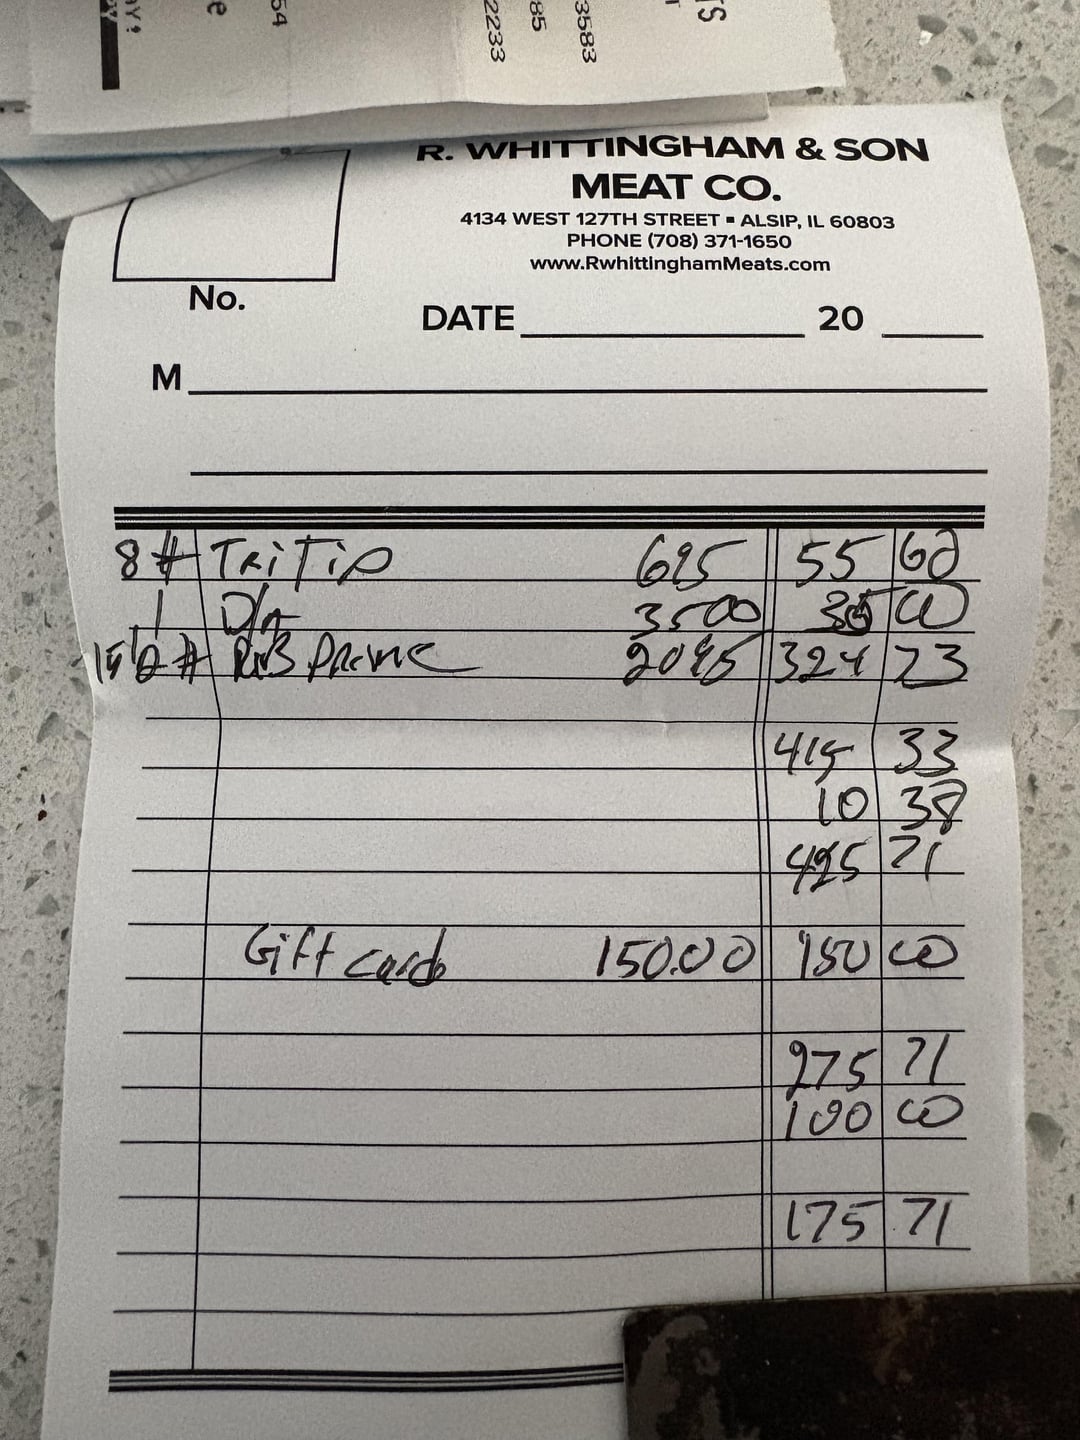 3583
85
2233
54
R. WHITTINGHAM & SON
MEAT CO.
4134 WEST 127TH STREET ▪ ALSIP, IL 60803
PHONE (708) 371-1650
www.RwhittinghamMeats.com
No.
DATE 20
M
8# TRi Tip 695 55 60
1 3500 35 00
15 1/2# RiB PRiMe 2095 324 73
415 33
10 38
425 71
Gift cards 150.00 150 00
275 71
100 00
175 71